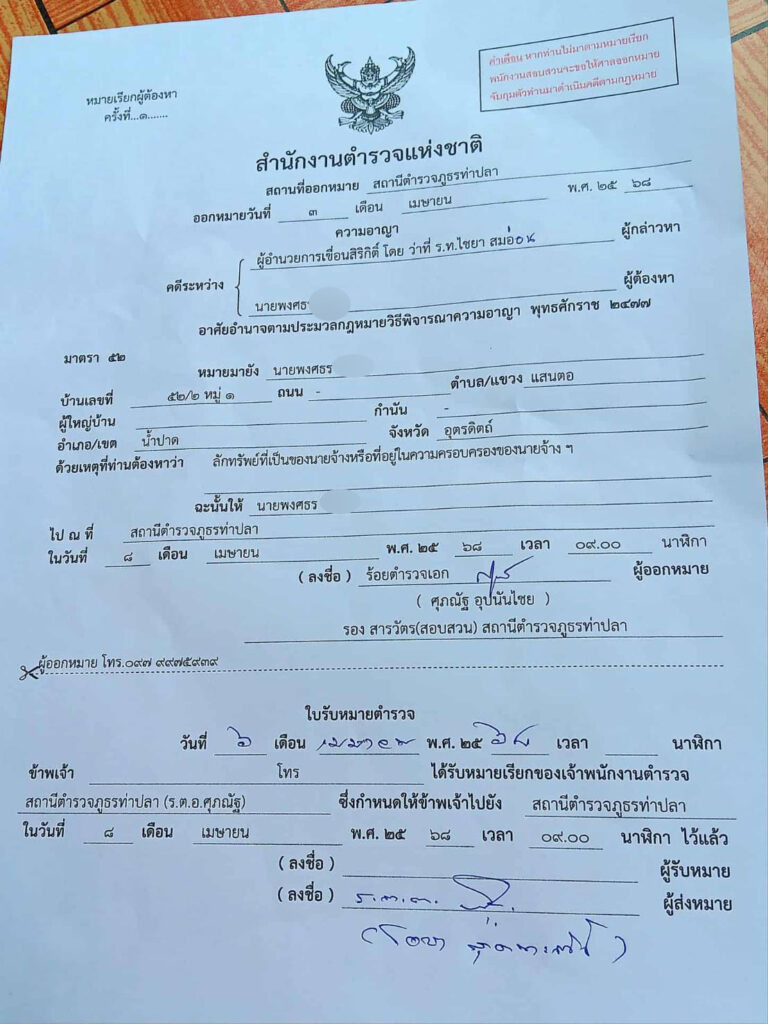 หมายเรียกผู้ต้องหา
ครั้งที่...๑.......
คำเตือน หากท่านไม่มาตามหมายเรียก
พนักงานสอบสวนจะขอให้ศาลออกหมาย
จับกุมตัวท่านมาดำเนินคดีตามกฎหมาย
สำนักงานตำรวจแห่งชาติ
สถานที่ออกหมาย สถานีตำรวจภูธรท่าปลา
ออกหมายวันที่ ๓ เดือน เมษายน พ.ศ. ๒๕ ๖๘
ความอาญา
ผู้อำนวยการเขื่อนสิริกิติ์ โดย ว่าที่ ร.ท.ไชยา สมอ่อน ผู้กล่าวหา
คดีระหว่าง
นายพงศธ ผู้ต้องหา
อาศัยอำนาจตามประมวลกฎหมายวิธีพิจารณาความอาญา พุทธศักราช ๒๔๗๗
มาตรา ๕๒
หมายมายัง นายพงศธร
บ้านเลขที่ ๕๒/๒ หมู่ ๑ ถนน - ตำบล/แขวง แสนตอ
ผู้ใหญ่บ้าน กำนัน -
อำเภอ/เขต น้ำปาด จังหวัด อุตรดิตถ์
ด้วยเหตุที่ท่านต้องหาว่า ลักทรัพย์ที่เป็นของนายจ้างหรือที่อยู่ในความครอบครองของนายจ้าง ฯ
ฉะนั้นให้ นายพงศธร
ไป ณ ที่ สถานีตำรวจภูธรท่าปลา
ในวันที่ ๘ เดือน เมษายน พ.ศ. ๒๕ ๖๘ เวลา ๐๙.๐๐ นาฬิกา
( ลงชื่อ ) ร้อยตำรวจเอก ผู้ออกหมาย
( ศุภณัฐ อุปนันไชย )
รอง สารวัตร(สอบสวน) สถานีตำรวจภูธรท่าปลา
ผู้ออกหมาย โทร.๐๙๗ ๙๙๗๕๙๓๙
ใบรับหมายตำรวจ
วันที่ ๖ เดือน เมษายน พ.ศ. ๒๕ ๖๘ เวลา นาฬิกา
ข้าพเจ้า โทร ได้รับหมายเรียกของเจ้าพนักงานตำรวจ
สถานีตำรวจภูธรท่าปลา (ร.ต.อ.ศุภณัฐ) ซึ่งกำหนดให้ข้าพเจ้าไปยัง สถานีตำรวจภูธรท่าปลา
ในวันที่ ๘ เดือน เมษายน พ.ศ. ๒๕ ๖๘ เวลา ๐๙.๐๐ นาฬิกา ไว้แล้ว
( ลงชื่อ ) ผู้รับหมาย
( ลงชื่อ ) ร.ต.ต. ผู้ส่งหมาย